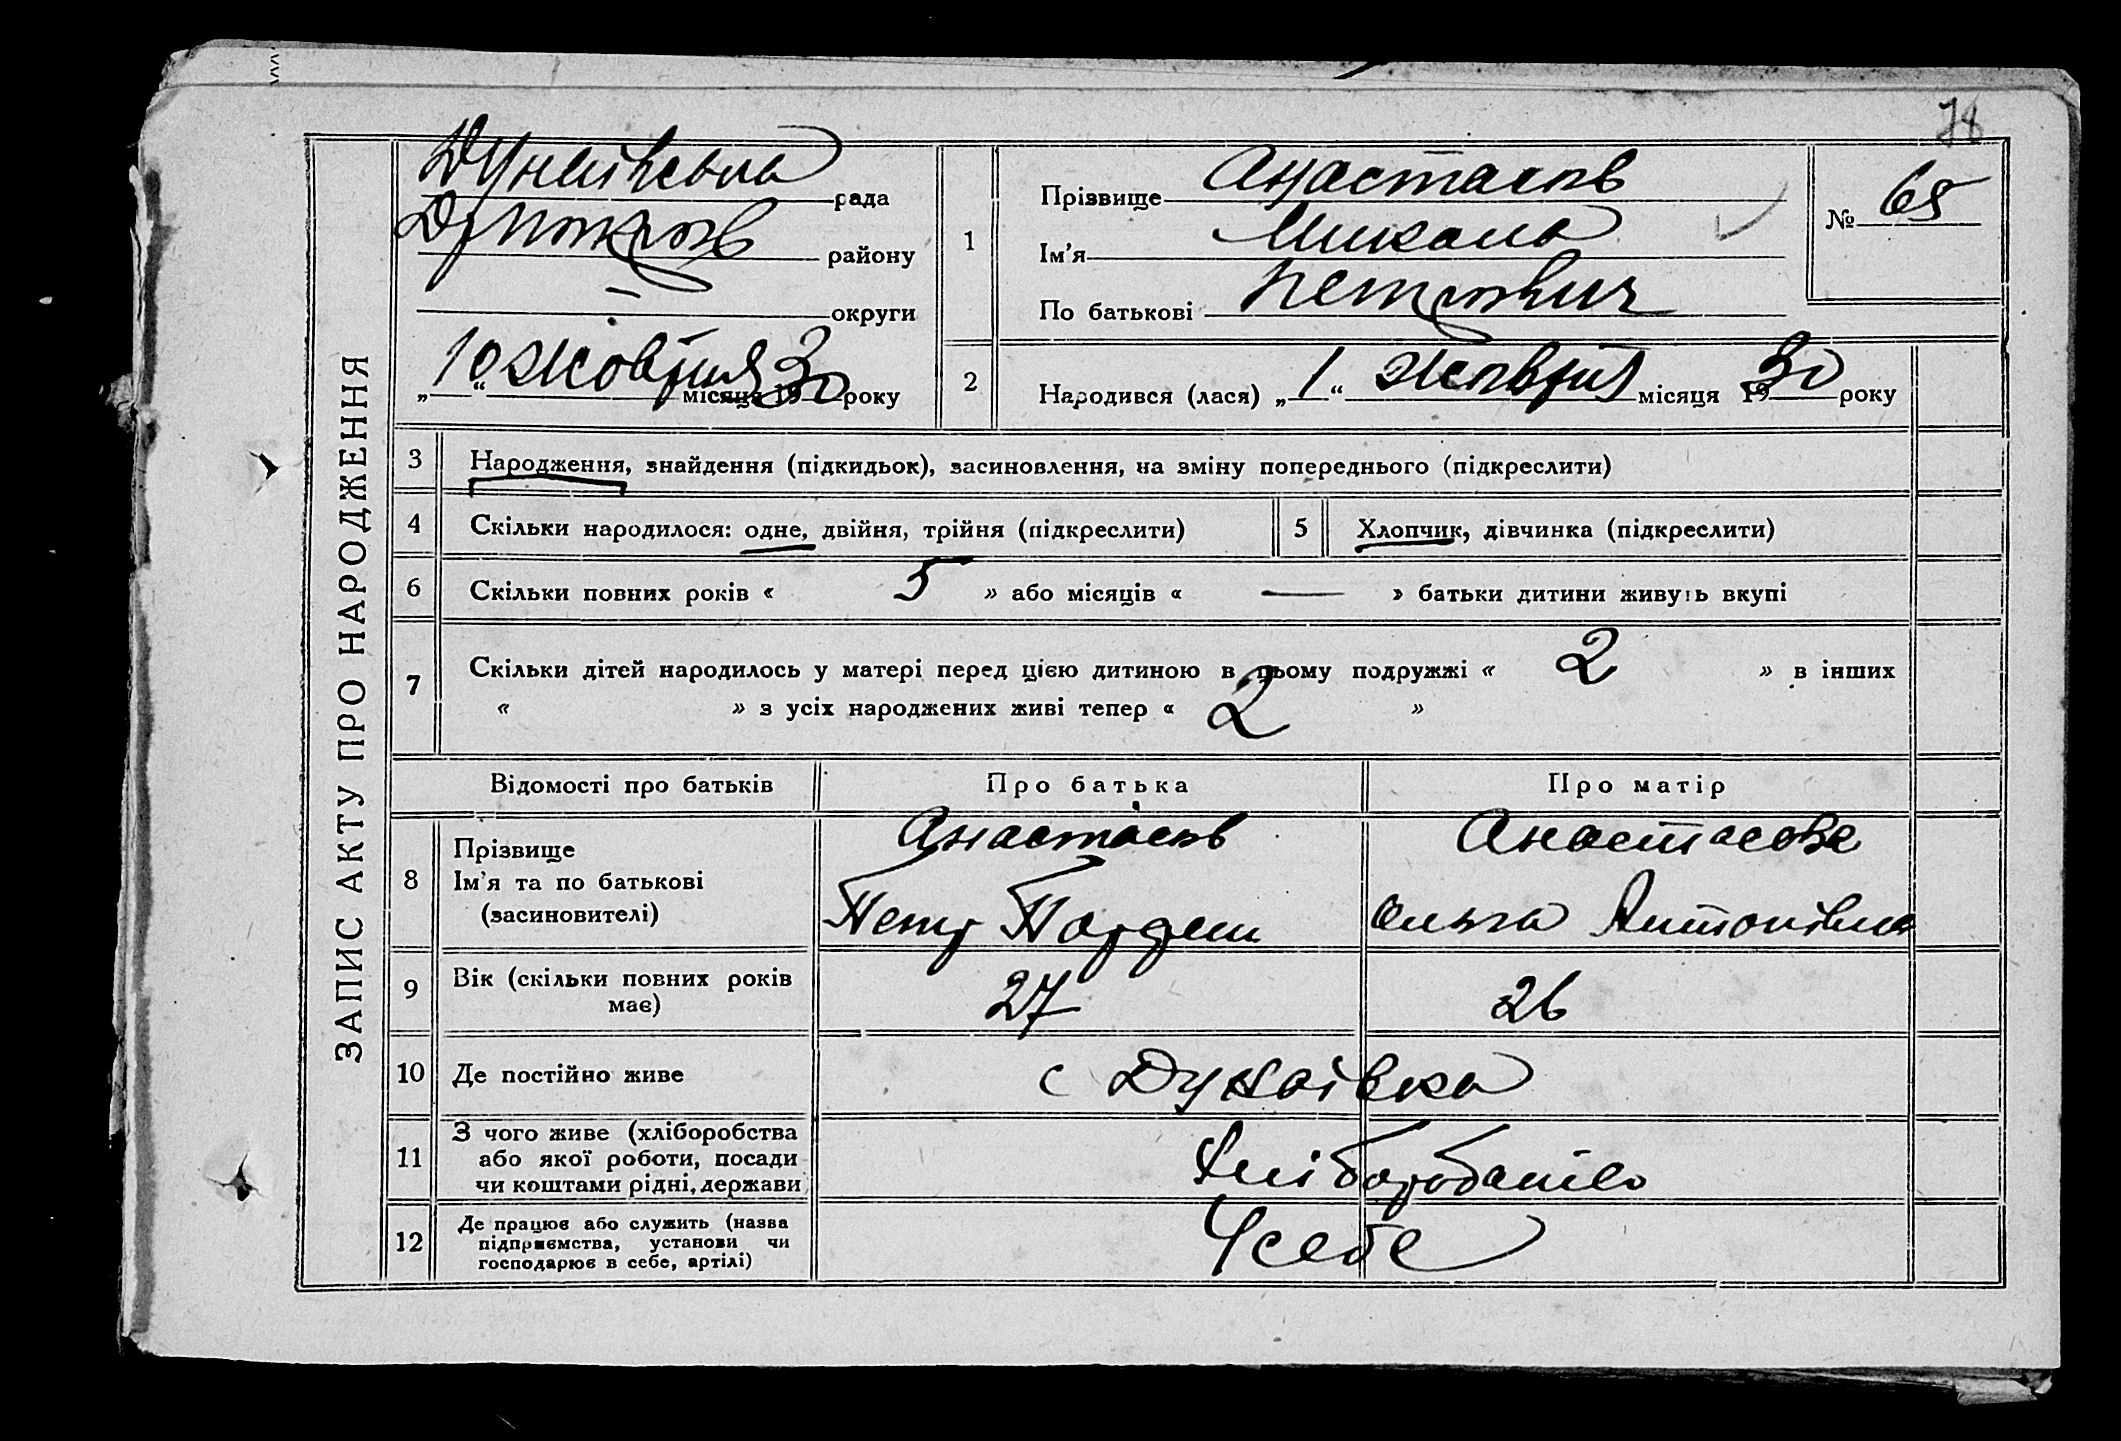 78
ЗАПИС АКТУ ПРО НАРОДЖЕННЯ
Дунаївська рада
району
— округи
„10“ Жовтня місяця 1930 року
1
Прізвище Анастасов
Ім'я Микола
По батькові Петрович
№ 68
2
Народився (лася) „1“ Жовтня місяця 1930 року
3 Народження, знайдення (підкидьок), засиновлення, на зміну попереднього (підкреслити)
4 Скільки народилося: одне, двійня, трійня (підкреслити)
5 Хлопчик, дівчинка (підкреслити)
6 Скільки повних років « 5 » або місяців « — » батьки дитини живуть вкупі
7 Скільки дітей народилось у матері перед цією дитиною в цьому подружжі « 2 » в інших
« » з усіх народжених живі тепер « 2 »
Відомості про батьків Про батька Про матір
8 Прізвище
Ім'я та по батькові
(засиновителі)
Анастасов
Петр
Анастасова
Ольга Антонівна
9 Вік (скільки повних років
має)
27 26
10 Де постійно живе с Дунаівка
11 З чого живе (хліборобства
або якої роботи, посади
чи коштами рідні, держави
12 Де працює або служить (назва
підприємства, установи чи
господарює в себе, артілі)
У себе